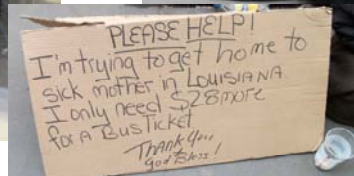 PLEASE HELP!
I'm trying to get home to
sick mother in LOUISIANA
I only need $28 more
for A Bus Ticket
Thank You
God Bless!